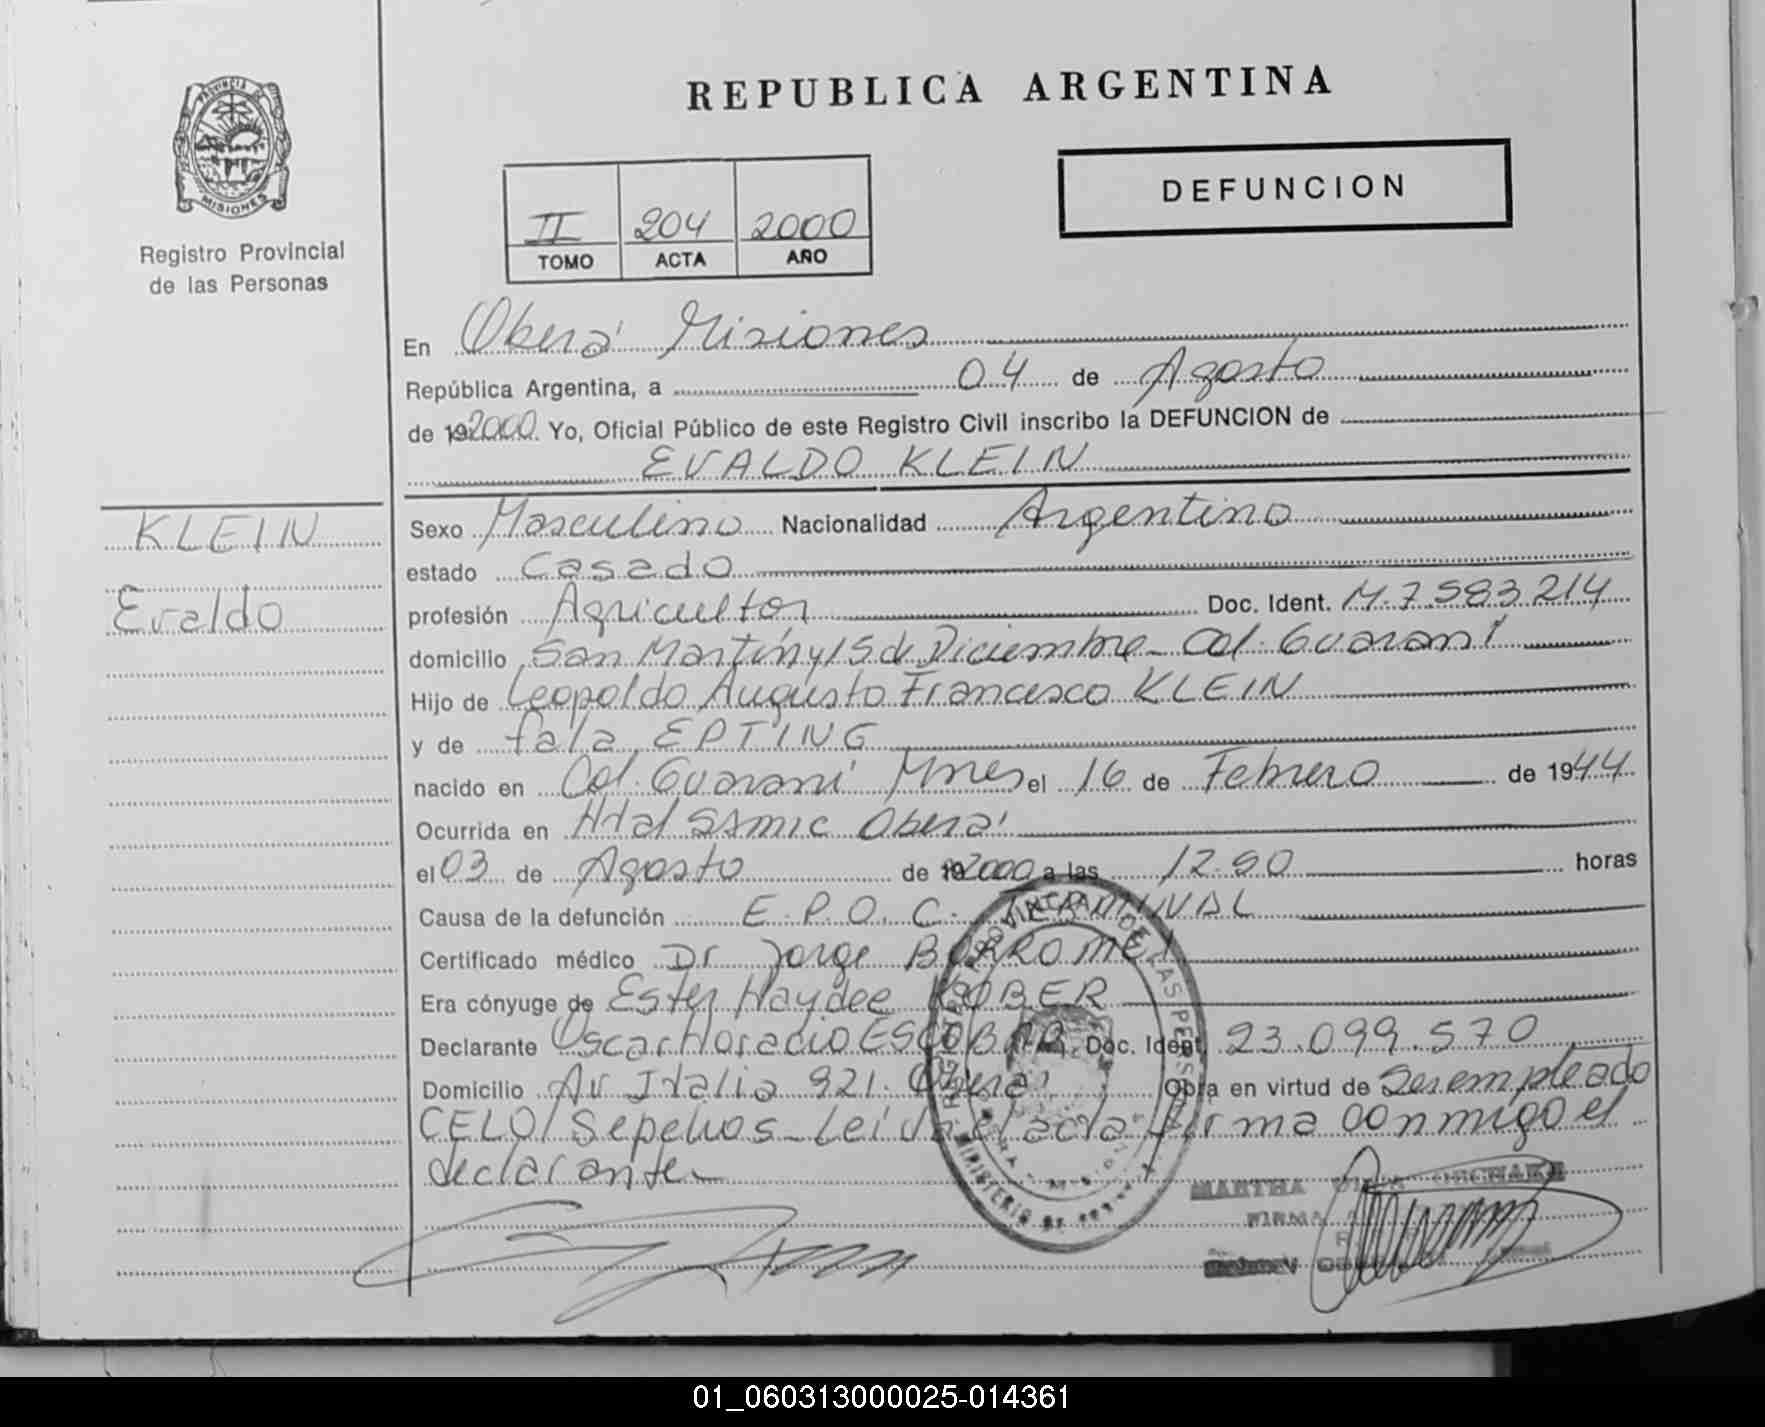 PROVINCIA DE
MISIONES
Registro Provincial
de las Personas
REPUBLICA ARGENTINA
DEFUNCION
II 204 2000
TOMO ACTA AÑO
En Oberá Misiones
República Argentina, a 04 de Agosto
de 192000. Yo, Oficial Público de este Registro Civil inscribo la DEFUNCION de
EVALDO KLEIN
KLEIN
Evaldo
Sexo Masculino Nacionalidad Argentino
estado Casado
profesión Agricultor Doc. Ident. M.7.583.214
domicilio San Martín y 15 de Diciembre - Col. Guaraní
Hijo de Leopoldo Augusto Francesco KLEIN
y de fala EPTING
nacido en Col. Guaraní Mnes el 16 de Febrero de 1944
Ocurrida en Htal SAMIC Oberá
el 03 de Agosto de 192000 a las 12.50 horas
Causa de la defunción E.P.O.C. TERMINAL
Certificado médico Dr Jorge BORROMEI
Era cónyuge de Ester Haydee KOBER
Declarante Oscar Horacio ESCOBAR Doc. Ident. 23.099.570
Domicilio Av Italia 921. Oberá Obra en virtud de Desempleado
CELO/Sepelios - Leída el acta firma conmigo el
declarante
MARTHA
FIRMA
01_060313000025-014361